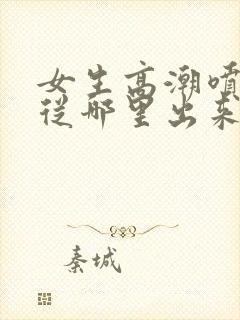 女生高潮喷
从哪里出来
秦城